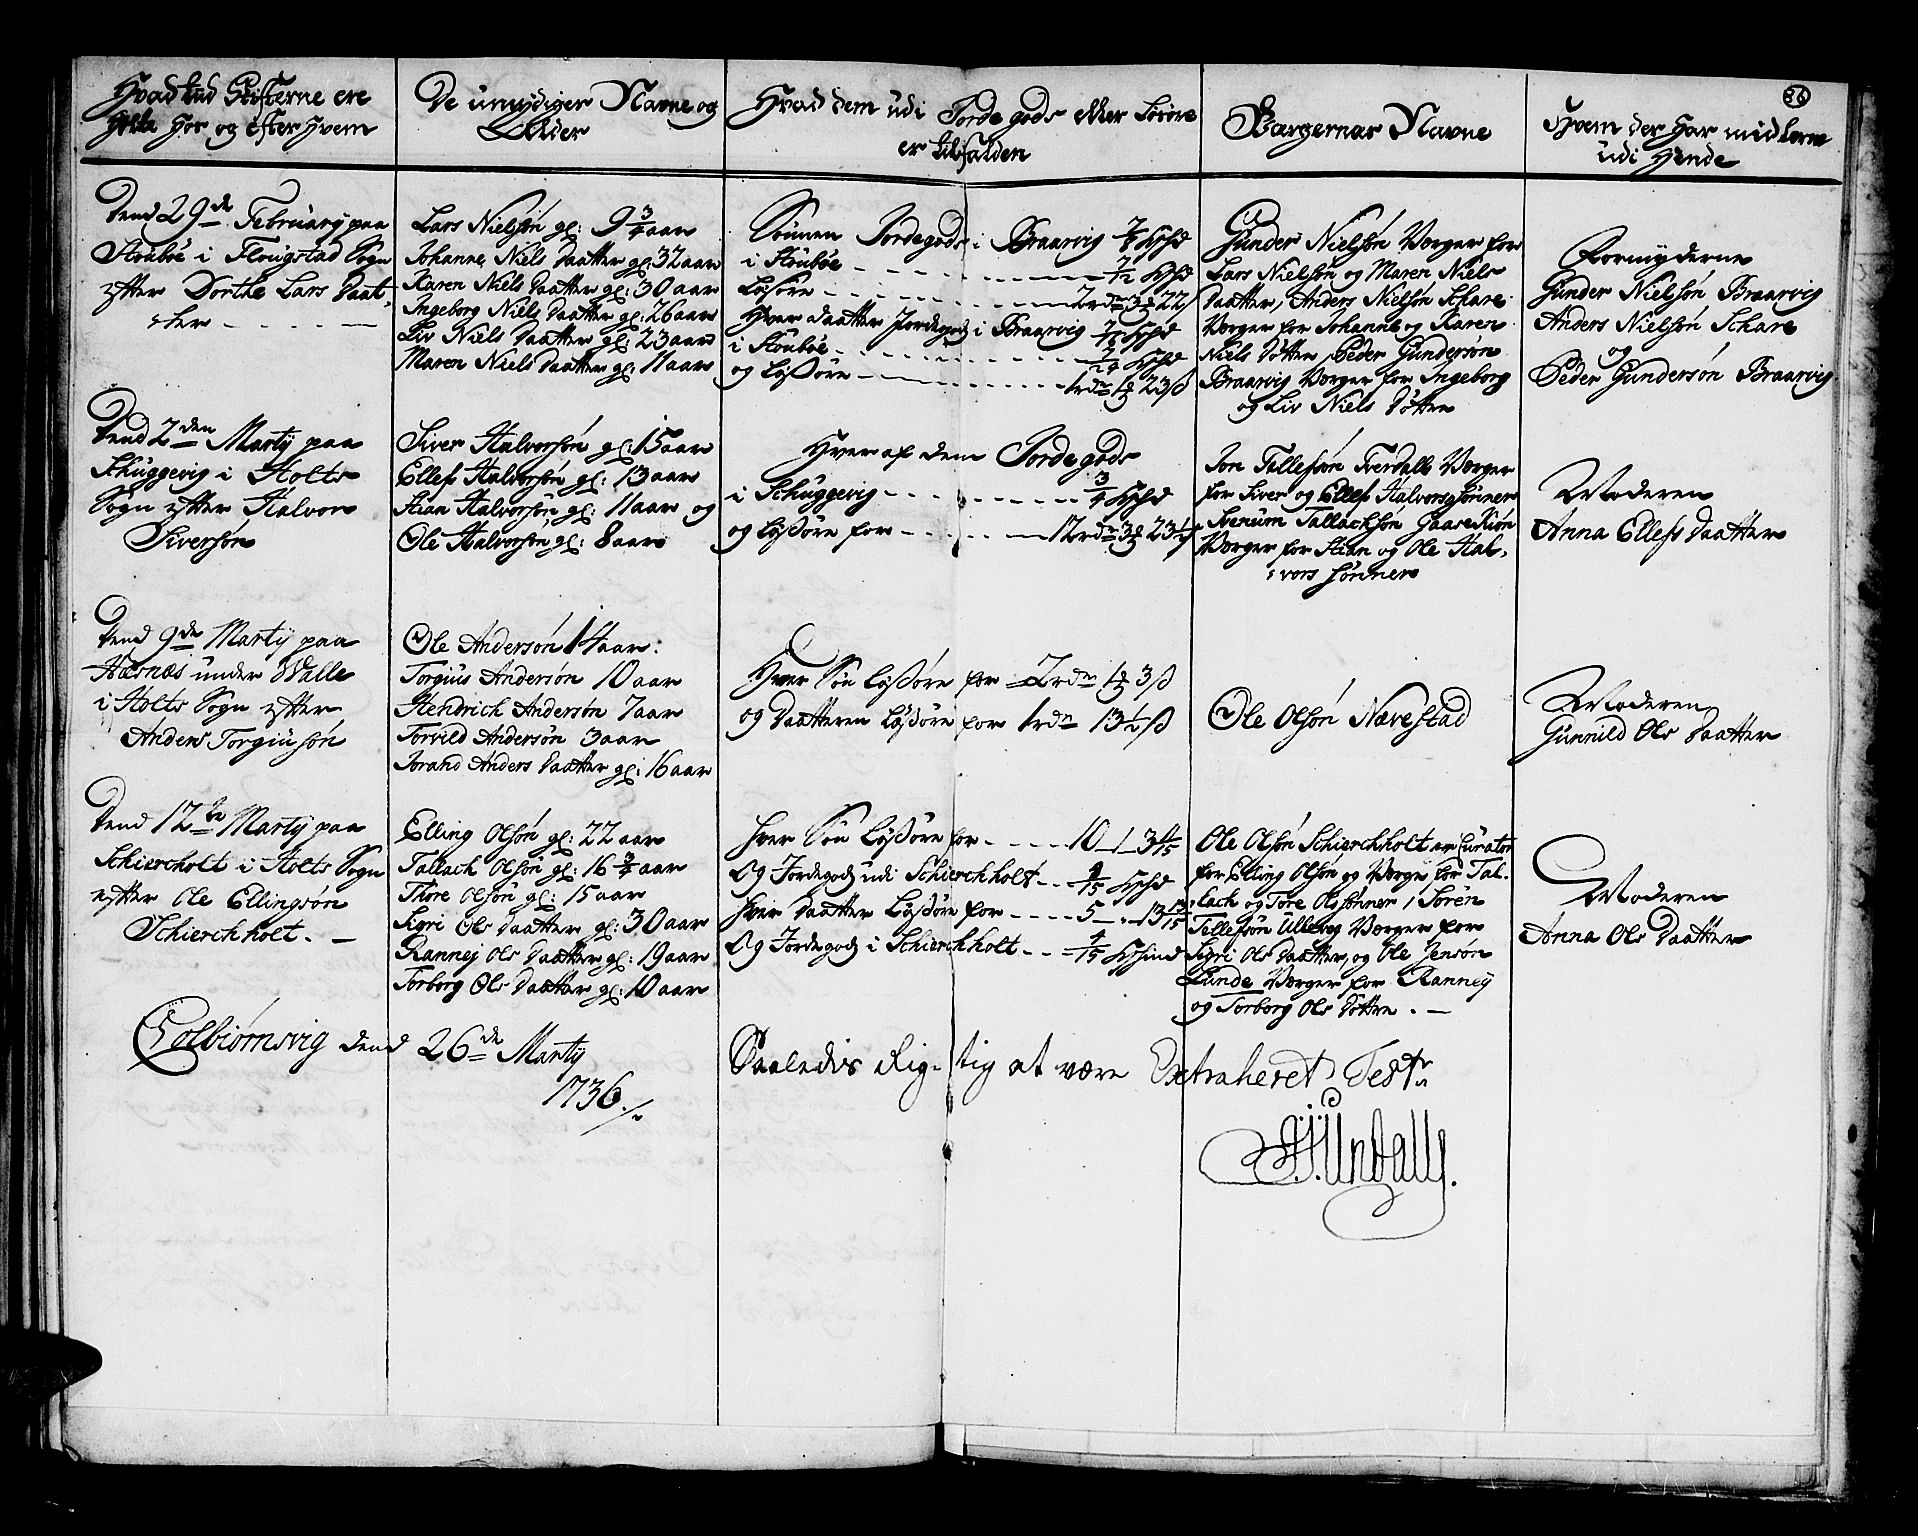 36
Hvad tiid Skifterne ere
Holte Hos og efter Hvem
De umÿdiger Navne og
Alder
Hvad dem udi Jorde gods eller Løsøre
er tilfalden
Værgernes Navne
Hvem der Har midlerne
udi Hende
Dend 29de Februarÿ paa
Stoubøe i Flougstad Sogn
efter Dorthe Lars Daat-
ter
Lars Nielsøn gl: 9 3/4 aar
Johanne Niels Daatter gl: 32 aar
Karen Niels Daatter gl: 30 aar
Ingeborg Niels Daatter gl: 26 aar
Liv Niels Daatter gl: 23 aar
Maren Niels Daatter gl: 11 aar
Sønnen Jordegods i Braarvig 7/8 Hshd
i Stoubøe 7/12 Hshd
Løsøre 2 rdr 3 22 ß
Hver daatter Jordegods i Braarvig 7/16 Hshd
i Stoubøe 7/24 Hshd
og Løsøre 1 rdr 1 23 ß
Gunder Nielsøn Verger for
Lars Nielsøn og Maren Niels
Daatter, Anders Nielsøn Schare
Verger for Johanne og Karen
Niels Døttre, Peder Gundersøn
Braarvig Verger for Ingeborg
og Liv Niels Døttre
Formynderne
Gunder Nielsøn Braarvig
Anders Nielsøn Schare
og
Peder Gundersøn Braarvig
Dend 2den Martÿ paa
Schuggevig i Holts
Sogn efter Halvor
Siversøn
Siver Halvorsøn gl: 15 aar
Ellef Halvorsøn gl: 13 aar
Stian Halvorsøn gl: 11 aar og
Ole Halvorsøn gl: 8 aar
Hver af dem Jorde gods
i Schuggevig 3/4 Hshd
og Løsøre for 12 rdr 3 23 1/2 ß
Jon Tallefsøn Tverdall Verger
for Siver og Ellef Halvorssønner
Svenum Tallachsøn Gaaseskiør
Verger for Stian og Ole Hal-
vors sønner
Moderen
Anna Ellefs Daatter
Dend 9de Martÿ paa
Hæsnæs under Walle
i Holts Sogn efter
Anders Torgiusøn
Ole Andersøn 14 aar:
Torgius Andersøn 10 aar
Hendrich Andersøn 7 aar
Torvild Andersøn 3 aar
Jorand Anders Daatter gl: 16 aar
Hver Søn Løsøre for 2 rdr 1 3 ß
og Daatteren Løsøre for 1 rdr 13 1/2 ß
Ole Olsøn Næfvestad
Moderen
Gunnild Ols Daatter
Dend 12te Martÿ paa
Schierchholt i Holts Sogn
efter Ole Ellingsøn
Schierchholt. —
Elling Olsøn gl: 22 aar
Tallach Olsøn gl: 16 3/4 aar
Thore Olsøn gl: 15 aar
Sigri Ols Daatter gl: 30 aar
Rannej Ols Daatter gl: 19 aar
Torborg Ols Daatter gl: 10 aar
Hver Søn Løsøre for 10 — 1 — 3 11/15
Og Jordegods udi Schierchholt 8/15 Hshd
Hver Daatter Løsøre for 5 — " — 13 13/15
Og Jordegods i Schierchholt 4/15 Hshud
Ole Olsøn Schierchholt er Curator
for Elling Olsøn og Verger for Tal-
lach og Tore Ols sønner, Søren
Tellefsøn Ulleveg Verger for
Sigri Ols Daatter, og Ole Jensøn
Lunde Verger for Rannej
og Torborg Ols Døttre. —
Moderen
Anna Ols Daatter
Colbiørnsvig dend 26de Martÿ
1736./.
Saaledis Rigtig at være Extraheret Test:
Undall.